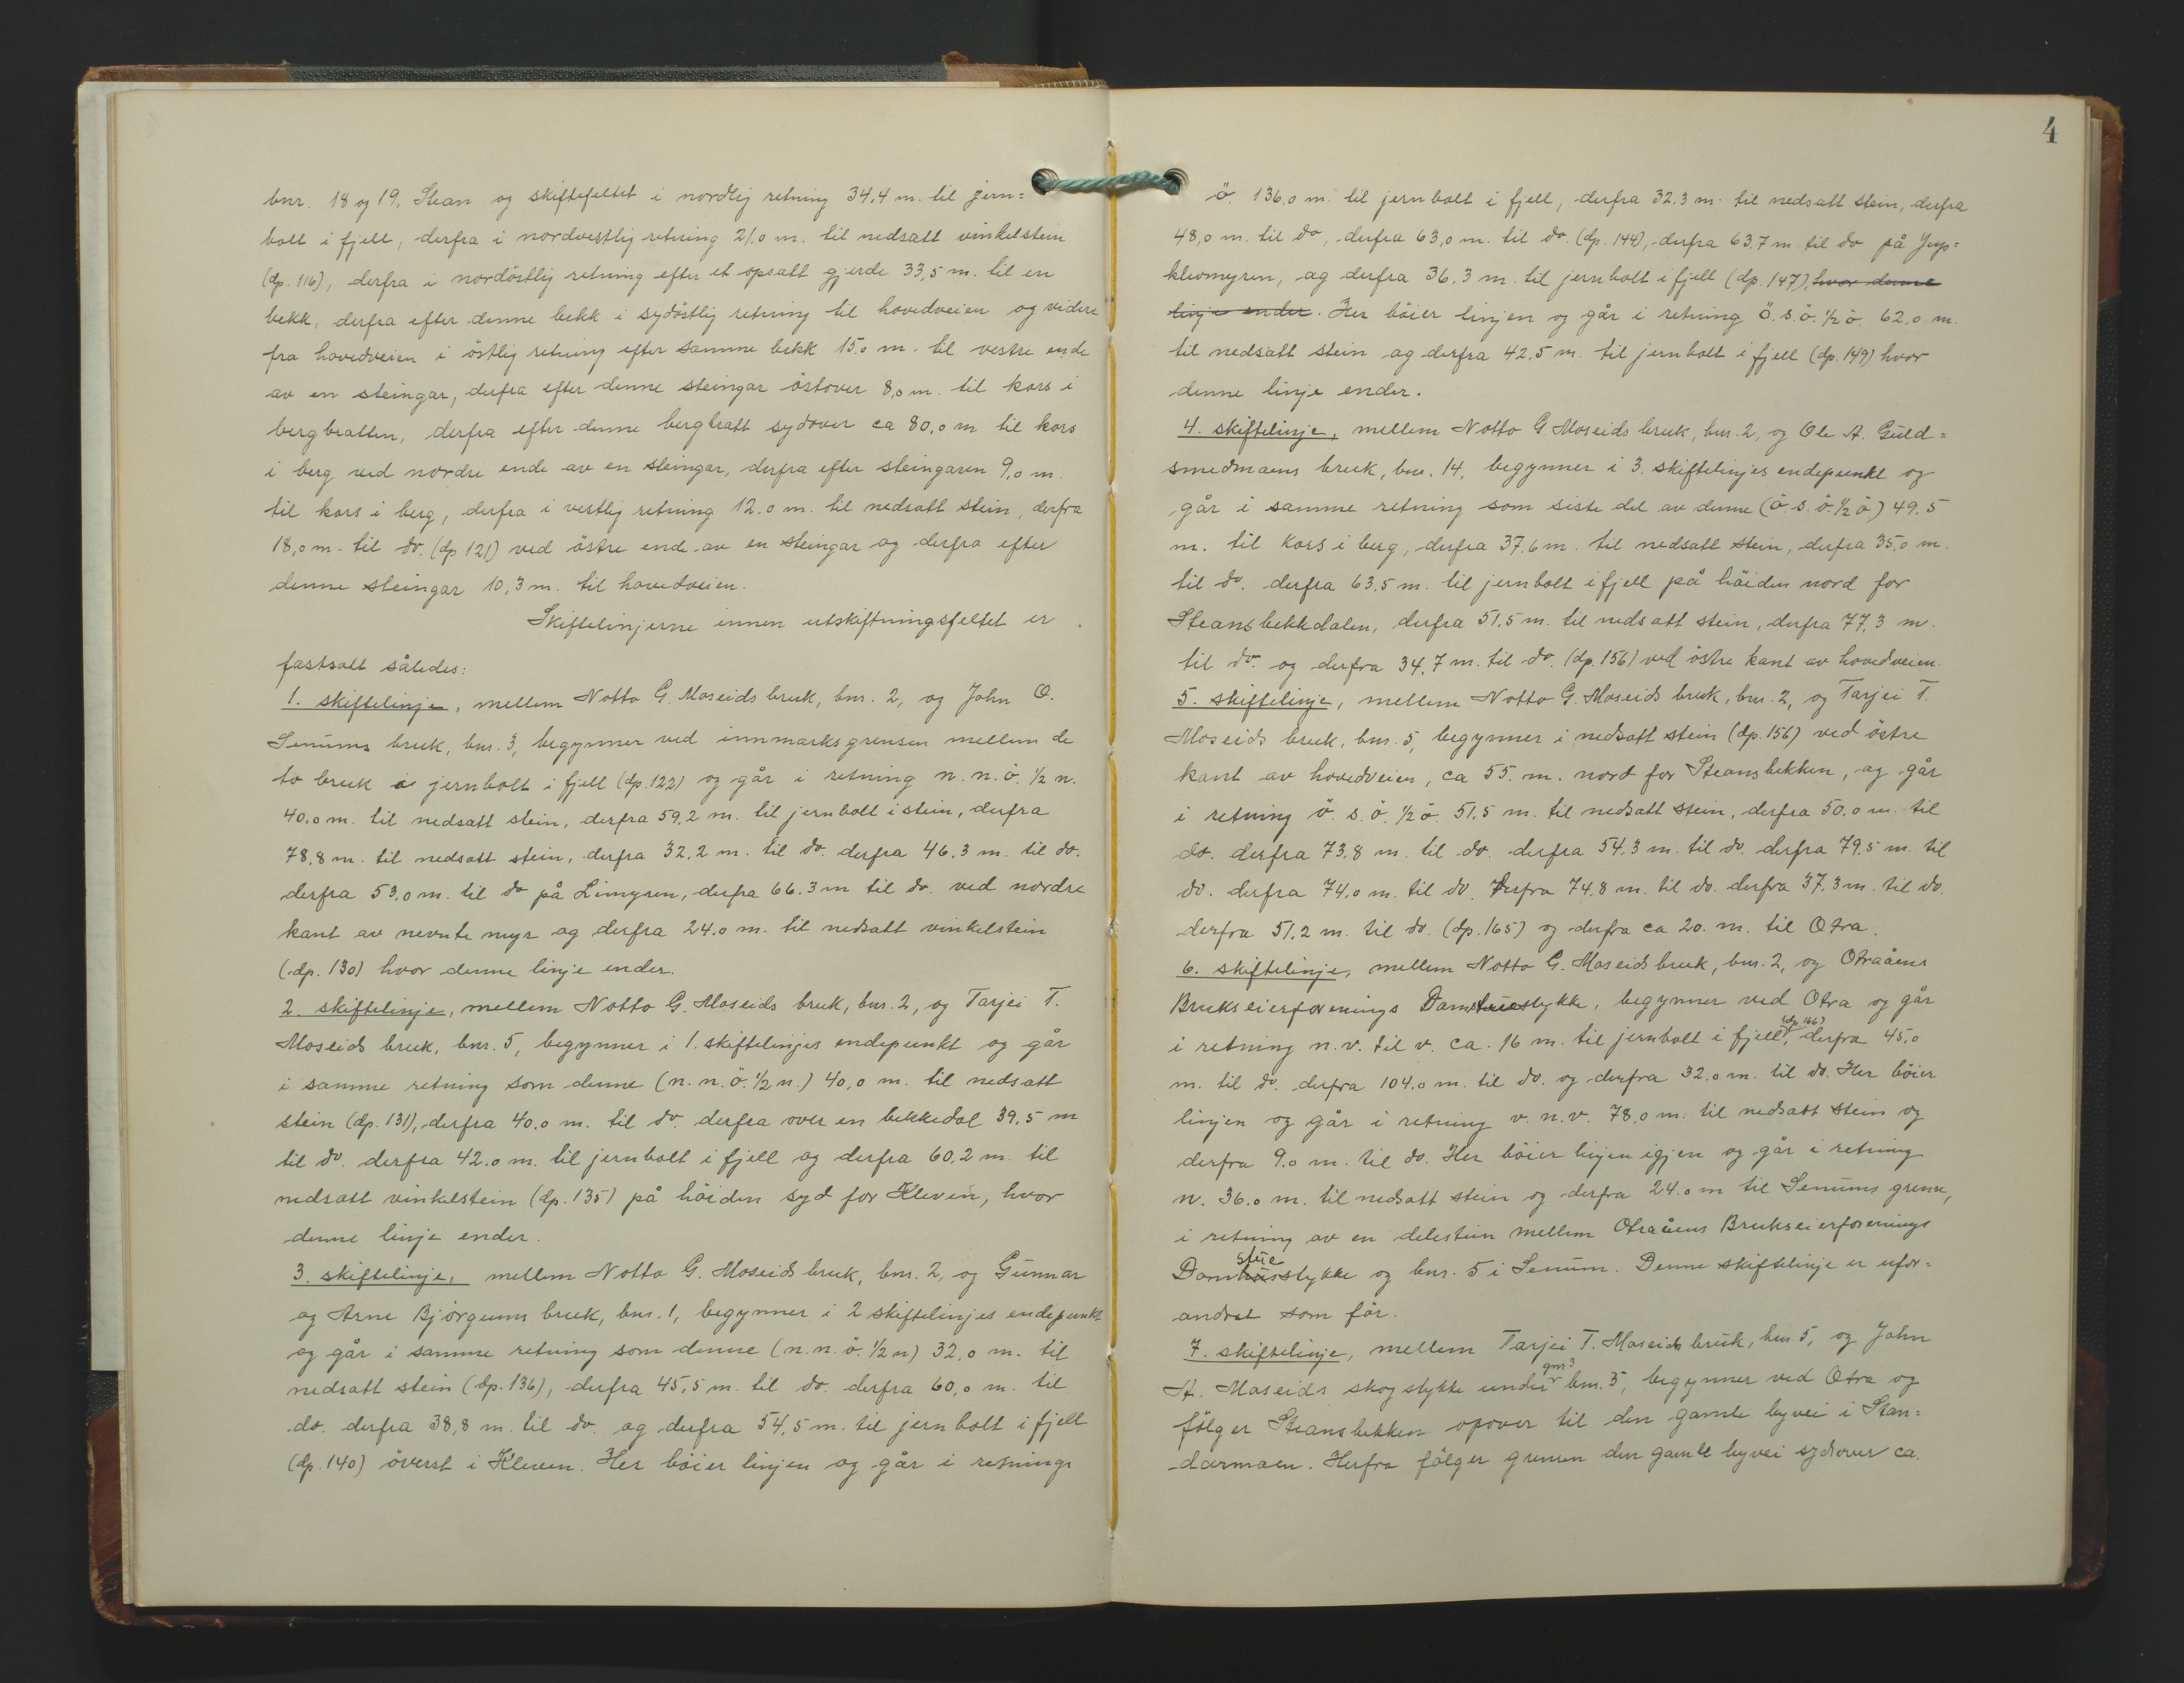 bnr. 18 og 19, Stean og skiftefeltet i nordlig retning 34,4 m. til jern=
bolt i fjell, derfra i nordvestlig retning 21,0 m. til nedsatt vinkelstein
(dp. 116), derfra i nordöstlig retning efter et opsatt gjerde 33,5 m. til en
bekk, derfra efter denne bekk i sydöstlig retning til hovedveien og videre
fra hovedveien i östlig retning efter samme bekk 15,0 m. til vestre ende
av en steingar, derfra efter denne steingar östover 8,0 m. til kors i
bergbratten, derfra efter denne bergbratt sydover ca 80,0 m til kors
i berg ved nordre ende av en steingar, derfra efter steingaren 9,0 m.
til kors i berg, derfra i vestlig retning 12.0 m. til nedsatt stein, derfra
18,0 m. til do. (dp 121) ved östre ende av en steingar og derfra efter
denne steingar 10,3 m. til hovedveien.
Skiftelinjerne innen utskiftningsfeltet er
fastsatt således:
1. skiftelinje, mellem Notto G. Moseids bruk, bnr. 2, og John O.
Senums bruk, bnr. 3, begynner ved innmarksgrensen mellem de
to bruk i jernbolt i fjell (dp. 122) og går i retning n. n. ö. 1/2 n.
40,0 m. til nedsatt stein, derfra 59,2 m. til jernbolt i stein, derfra
78,8 m. til nedsatt stein, derfra 32,2 m. til do. derfra 46.3 m. til do.
derfra 53,0 m. til do på Limyren, derfra 66.3 m til do. ved nordre
kant av nevnte myr og derfra 24.0 m. til nedsatt vinkelstein
(dp. 130) hvor denne linje ender.
2. skiftelinje, mellem Notto G. Moseids bruk, bnr. 2, og Tarjei T.
Moseids bruk, bnr. 5, begynner i 1. skiftelinjes endepunkt og går
i samme retning som denne (n. n. ö. 1/2 n.) 40,0 m. til nedsatt
stein (dp. 131), derfra 40.0 m. til do. derfra over en bekkedal 39,5 m
til do. derfra 42.0 m. til jernbolt i fjell og derfra 60,2 m. til
nedsatt vinkelstein (dp. 135) på höiden syd for Kleven, hvor
denne linje ender.
3. skiftelinje, mellem Notto G. Moseids bruk, bnr. 2, og Gunnar
og Arne Björgums bruk, bnr. 1, begynner i 2 skiftelinjes endepunkt
og går i samme retning som denne (n. n. ö. 1/2 n) 32,0 m. til
nedsatt stein (dp. 136), derfra 45,5 m. til do. derfra 60,0 m. til
do. derfra 38,8 m. til do. og derfra 54,5 m. til jernbolt i fjell
(dp. 140) överst i Kleven. Her böier linjen og går i retnings
4
ö. 136,0 m. til jernbolt i fjell, derfra 32.3 m. til nedsatt stein, derfra
48,0 m. til do, derfra 63,0 m. til do. (dp. 144), derfra 63,7 m. til do på
kleomyren, og derfra 36.3 m. til jernbolt i fjell (dp. 147), hvor denne
linje ender. Her böier linjen og går i retning Ö. s. ö. 1/2 ö. 62.0 m.
til nedsatt stein og derfra 42,5 m. til jernbolt i fjell (dp. 149) hvor
denne linje ender.
4. skiftelinje, mellem Notto G. Moseids bruk, bnr. 2, og Ole A. Guld=
smedmoens bruk, bnr. 14, begynner i 3. skiftelinjes endepunkt og
går i samme retning som siste del av denne (ö. s. ö. 1/2 ö) 49,5
m. til kors i berg, derfra 37,6 m. til nedsatt stein, derfra 35,0 m.
til do. derfra 63,5 m. til jernbolt i fjell på höiden nord for
Steansbekkdalen, derfra 51,5 m. til nedsatt stein, derfra 77,3 m.
til do. og derfra 34,7 m. til do. (dp. 156) ved östre kant av hovedveien.
5. skiftelinje, mellem Notto G. Moseids bruk, bnr. 2, og Tarjei T.
Moseids bruk, bnr. 5, begynner i nedsatt stein (dp. 156) ved östre
kant av hovedveien, ca 55. m. nord for Steansbekken, og går
i retning ö. s. ö. 1/2 ö. 51,5 m. til nedsatt stein, derfra 50,0 m. til
do. derfra 73,8 m. til do. derfra 54,3 m. til do. derfra 79,5 m. til
do. derfra 74,0 m. til do. Derfra 74,8 m. til do. derfra 37,3 m. til do.
derfra 51,2 m. til do. (dp. 165) og derfra ca 20. m. til Otra.
6. skiftelinje, mellem Notto G. Moseids bruk, bnr. 2, og Otraåens
Brukseierforenings Damstuestykke, begynner ved Otra og går
i retning n. v. til v. ca. 16 m. til jernbolt i fjell, (dp. 166) derfra 45,0
m. til do. derfra 104.0 m. til do. og derfra 32.0 m. til do. Her böier
linjen og går i retning v. n. v. 78,0 m. til nedsatt stein og
derfra 9.0 m. til do. Her böier linjen igjen og går i retning
n. 36.0 m. til nedsatt stein og derfra 24.0 m til Senums grense,
i retning av en delestein mellem Otraåens Brukseierforenings
stue
Damhusstykke og bnr. 5 i Senum. Denne skiftelinje er ufor=
andret som för.
7. skiftelinje, mellem Tarjei T. Moseids bruk, bnr. 5, og John
A. Moseids skogstykke under gnr 3 bnr. 5, begynner ved Otra og
fölger Steansbekken opover til den gamle byvei i Stan=
darmoen. Herfra fölger grensen den gamle byvei sydover ca.